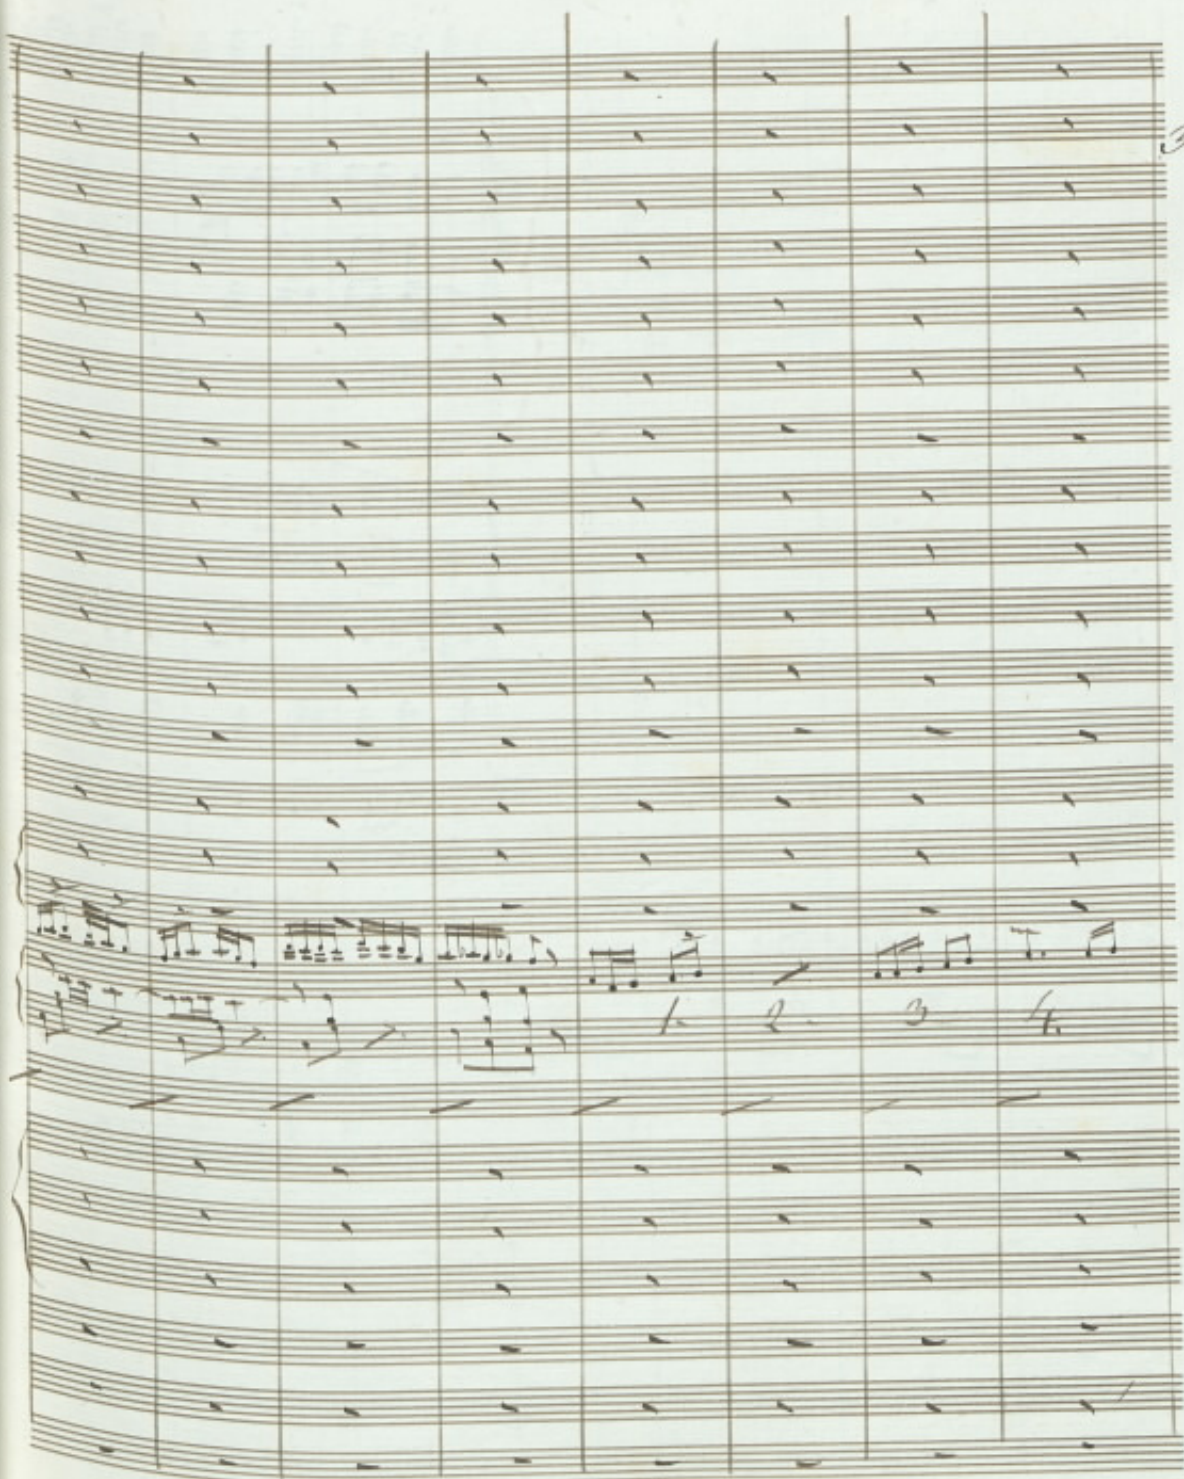 1. 2. 3 4.